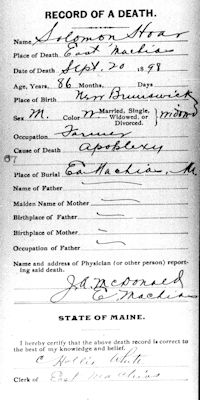 RECORD OF A DEATH.
Name Solomon Hoar
Place of Death East Machias
Date of Death Sept. 20 1898
Age, Years, 86 Months, Days
Place of Birth New Brunswick
Sex M. Color W Married, Single, Widowed, or Divorced. } Widowed
Occupation Farmer
Cause of Death Apoplexy
67
Place of Burial Ea Machias, Me.
Name of Father
Maiden Name of Mother
Birthplace of Father
Birthplace of Mother
Occupation of Father
Name and address of Physician (or other person) report-
ing said death.
J.A. McDonald
E Machias
STATE OF MAINE.
I hereby certify that the above death record is correct to
the best of my knowledge and belief.
C Hollis White
Clerk of East Machias